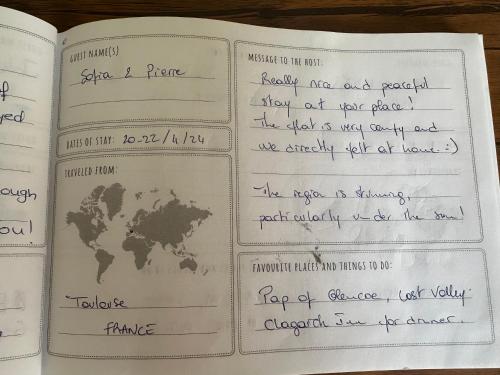 f
yed
ough
ou!
GUEST NAME(S)
Sofia & Pierre
DATES OF STAY: 20-22/4/24
TRAVELED FROM:
Toulouse
FRANCE
MESSAGE TO THE HOST:
Really nice and peaceful
stay at your place!
The flat is very comfy and
we directly felt at home :)
The region is stunning,
particularly under the sun!
FAVOURITE PLACES AND THINGS TO DO:
Pap of Glencoe, Lost Valley.
Clagaich Inn for dinner.